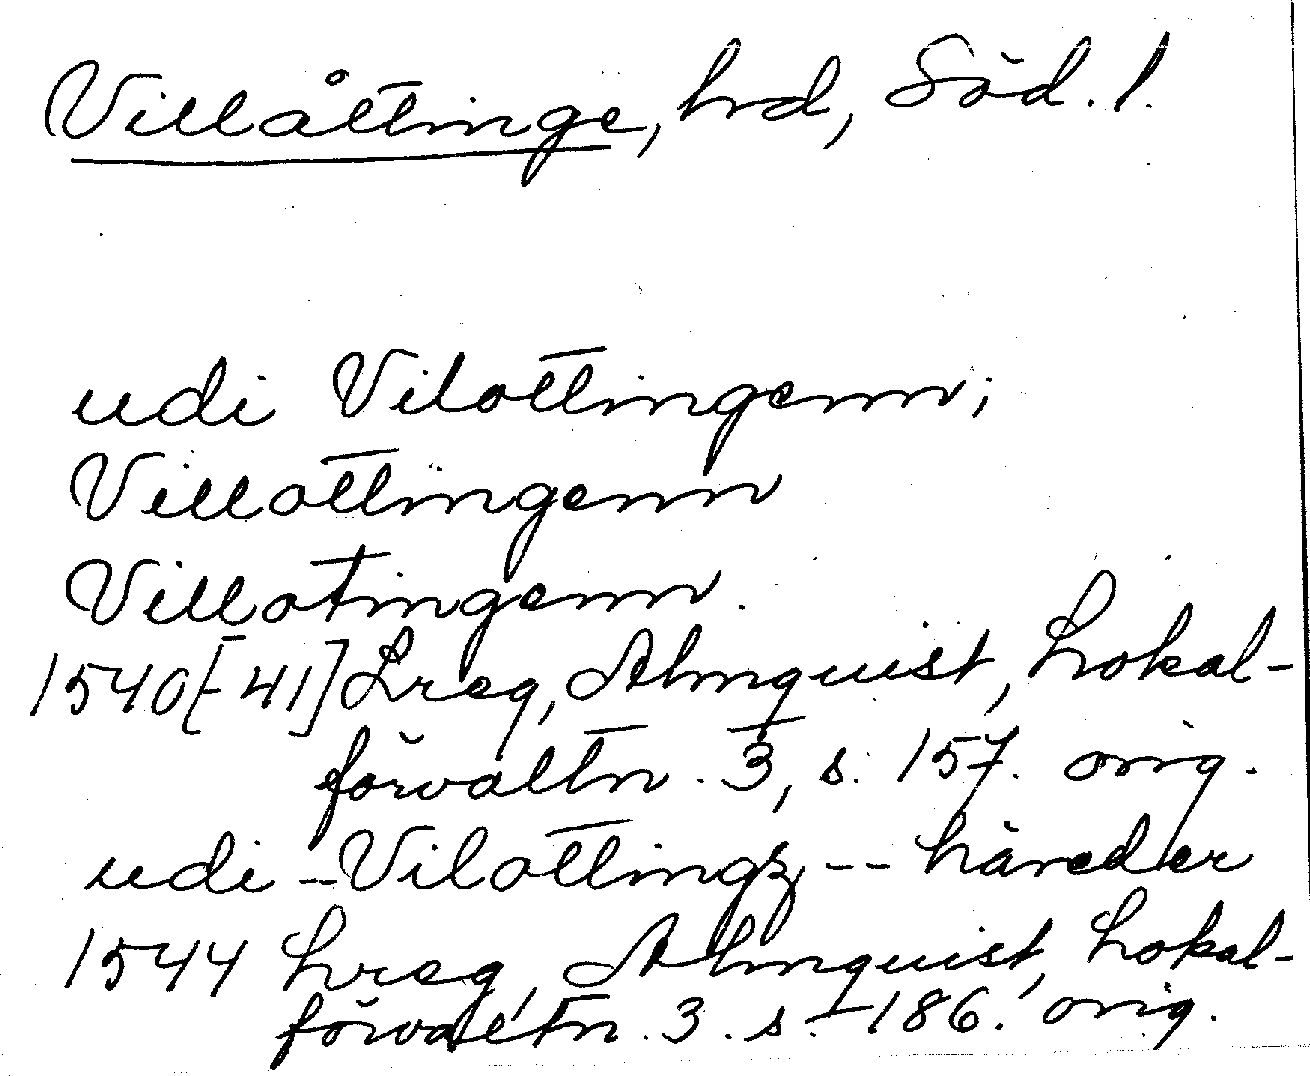 Villåttinge, hrd, Söd. l.
udi Vilottingenn;
Villottingenn
Villotingenn.
1540[-41] Lreg, Almquist, Lokal-
förvaltn. 3, s. 157. orig.
udi -- Vilottingz, -- häreder
1544 Lreg, Almquist, Lokal-
förvaltn. 3. s. 186. orig.